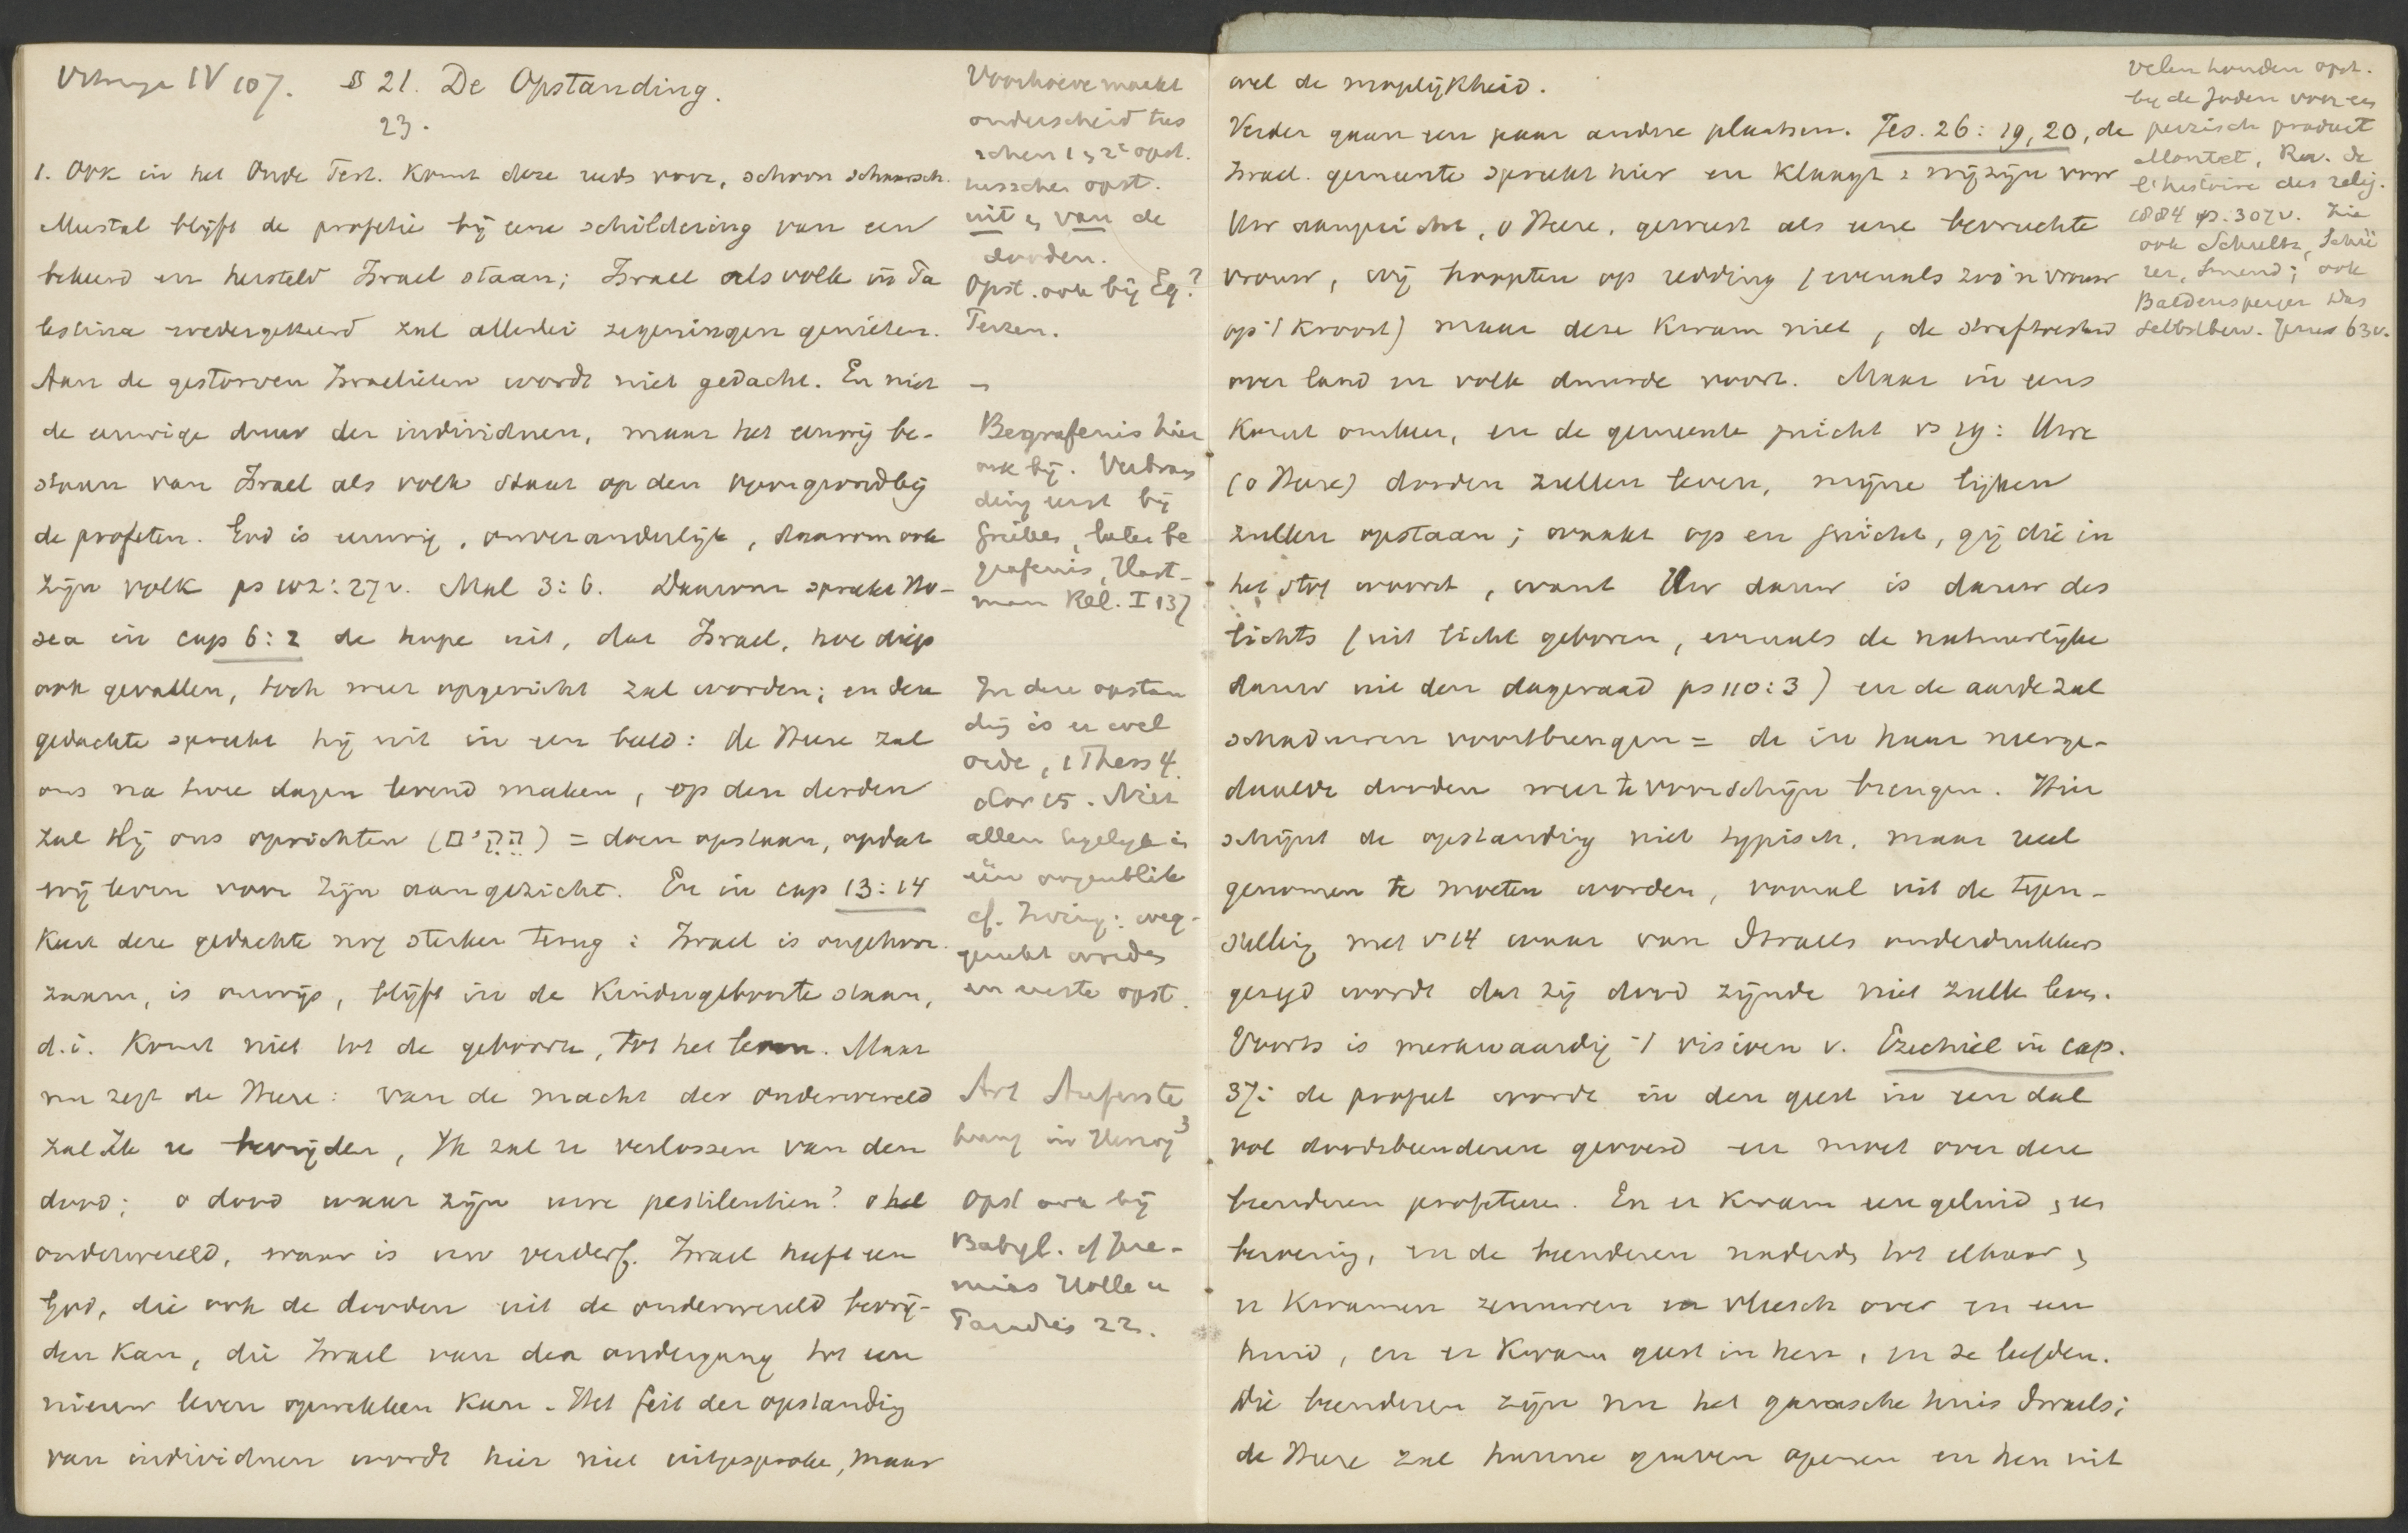 IV 107. § 21. De Opstanding.
23.
1. Ook in het Oude Test. komt deze reeds voor, schoon schaarsch.
Meestal blijft de profetie bij eene schildering van een
bekeerd en hersteld Israel staan; Israel als volk in Pa
lestina wedergekeerd zal allerlei zegeningen genieten.
Aan de gestorven Israelieten wordt niet gedacht. En niet
de eeuwige duur der individuen, maar het eeuwig be-
staan van Israel als volk staat op den voorgrond bij
de profeten. God is eeuwig, onveranderlijk, daarom ook
zijn volk ps 102:27v. Mal 3:6. Daarom spreekt Ho-
sea in cap 6:2 de hope uit, dat Israel, hoe diep
ook gevallen, toch weer opgericht zal worden; en deze
gedachte spreekt hij uit in een beeld: de Heere zal
ons na twee dagen levend maken, op den derden
zal Hij ons oprichten () = doen opstaan, opdat
wij leven voor Zijn aangezicht. En in cap 13:14
keert deze gedachte nog sterker terug: Israel is ongehoor
zaam, is onwijs, blijft in de kindergeboorte staan,
d.i. komt niet tot de geboorte, tot het leven. Maar
nu zegt de Heere: van de macht der onderwereld
zal Ik ze bevrijden, Ik zal ze verlossen van den
dood; o dood waar zijn uwe pestilentien? o hel
onderwereld, waar is uw verderf. Israel heeft een
God, die ook de dooden uit de onderwereld bevrij-
den kan, die Israel van den ondergang tot een
nieuw leven opwekken kan. Het feit der opstanding
van individuen wordt hier niet uitgesproken, maar
Voorhoeve maakt
onderscheid tus
schen 1 & 2e opst.
tusschen opst.
uit & van de
dooden.
Opst. ook bij Eg?
Perzen.
Begrafenis hier
ook bij. Verbran
ding eerst bij
Grieken, later be
grafenis,
Rel. I 137
In deze opstan
ding is er wel
orde, 1 Thess 4.
Cor 15. Niet
allen tegelijk in
één oogenblik
cf. weg-
gerukt worden
en eerste opst.
Art Auferste
hung in Herzog3
Opst ook bij
Babyl. cf Jere-
mias Hölle u
Paradies 22.
wel de mogelijkheid.
Verder gaan een paar andere plaatsen. Jes. 26:19,20, de
Israel. gemeente spreekt hier en klaagt: wij zijn voor
Uw aangezicht, o Heere, geweest als eene bevruchte
vrouw, wij hoopten op redding (evenals zoo'n vrouw
op 't kroost) maar deze kwam niet, de straftoestand
over land en volk duurde voort. Maar in eens
komt omkeer, en de gemeente juicht vs 19: Uwe
(o Heere) dooden zullen leven, mijne lijken
zullen opstaan; waakt op en juicht, gij die in
het stof woont, want Uw dauw is dauw des
lichts (uit licht geboren, evenals de natuurlijke
dauw uit den dageraad ps 110:3) en de aarde zal
schaduwen voortbrengen = de in haar neerge-
daalde dooden weer te voorschijn brengen. Hier
schijnt de opstanding niet typisch, maar reeel
genomen te moeten worden, vooral uit de tegen-
stelling met vs 14 waar van Israels onderdrukkers
gezegd wordt dat zij dood zijnde niet zullen leven.
Voorts is merkwaardig 't visioen v. Ezechiel in cap.
37: de profeet wordt in den geest in een dal
vol doodsbeenderen gevoerd en moet over deze
beenderen profeteeren. En er kwam een geluid & een
beroering, en de beenderen naderden tot elkaar &
er kwamen zenuwen en vleesch over en een
huid, en er kwam geest in hen, en ze leefden.
Die beenderen zijn nu het gansche huis Israels;
de Heere zal hunne graven openen en hen uit
Velen houden opst.
bij de Joden voor een
perzisch product
Montet, Rev. de
l'histoire des relig.
1884 p. 307v. Zie
ook Schultz, Schü
rer, Smend; ook
Baldensperger Das
Selbstbew. Jesus 63v.